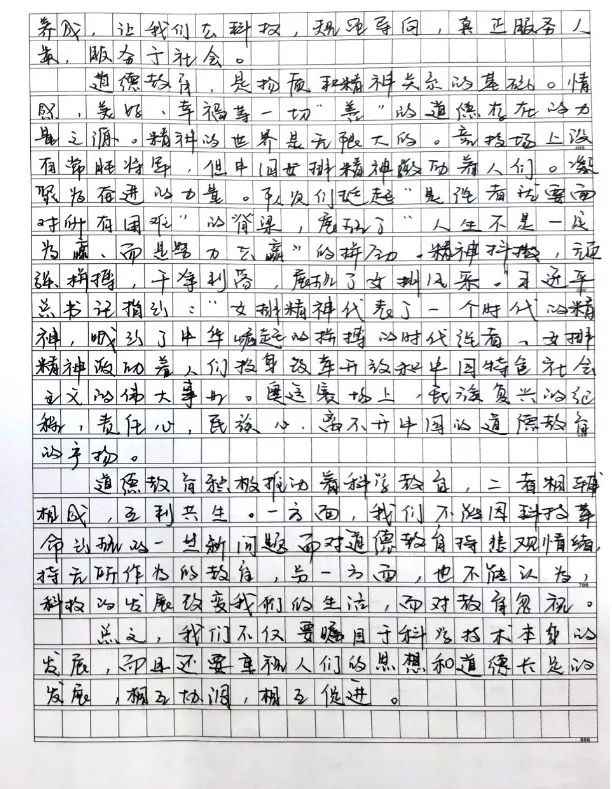 养成，让我们在科技，规范导向，真正服务人
类，服务于社会。
道德教育，是物质和精神关系的基础。情
照，美好，幸福等一切“善”的道德存在的力
量之源。精神的世界是无限大的。竞技场上没
有常胜将军，但中国女排精神激励着人们。凝
聚为奋进的力量。队员们挺起“是强者就要面
对所有困难”的脊梁，展现了“人生不是一定
为赢，而是努力去赢”的拼劲。精神抖擞，顽
强拼搏，干净利落，展现了女排风采。习近平
总书记指引：“女排精神代表了一个时代的精
神，吼引了中华崛起的拼搏的时代强者，女排
精神激励着人们投身改革开放和中国特色社会
主义的伟大事业。奥运赛场上，民族复兴的征
程，责任心，民族心，离不开中国的道德教育
的产物。
道德教育积极推动着科学教育，二者相辅
相成，互利共生。一方面，我们不能因科技革
命出现的一些新问题而对道德教育持悲观情绪，
持无所作为的教育，另一方面，也不能认为，
科技的发展改变我们的生活，而对教育忽视。
总之，我们不仅要瞩目于科学技术本身的
发展，而且还要重视人们的思想和道德长足的
发展，相互协调，相互促进。
700
800